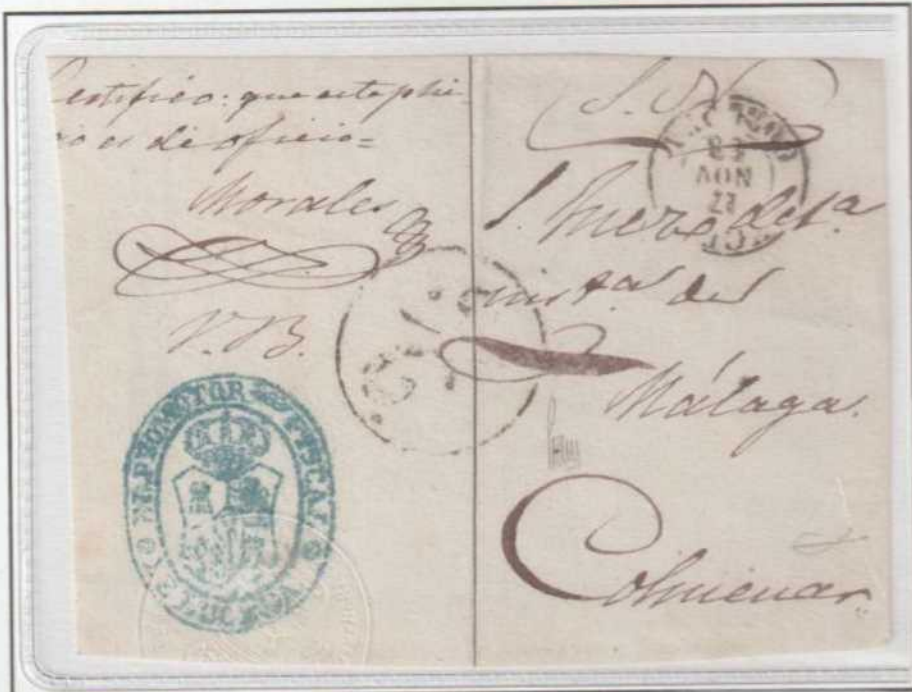 Certifico: que este plie-
go es de oficio=
Morales
V. B.
EL PROMOTOR FISCAL
DE LUCENA
S. N.
NOV
S. Juez de 1ª
inst.ª de
Málaga.
Colmenar